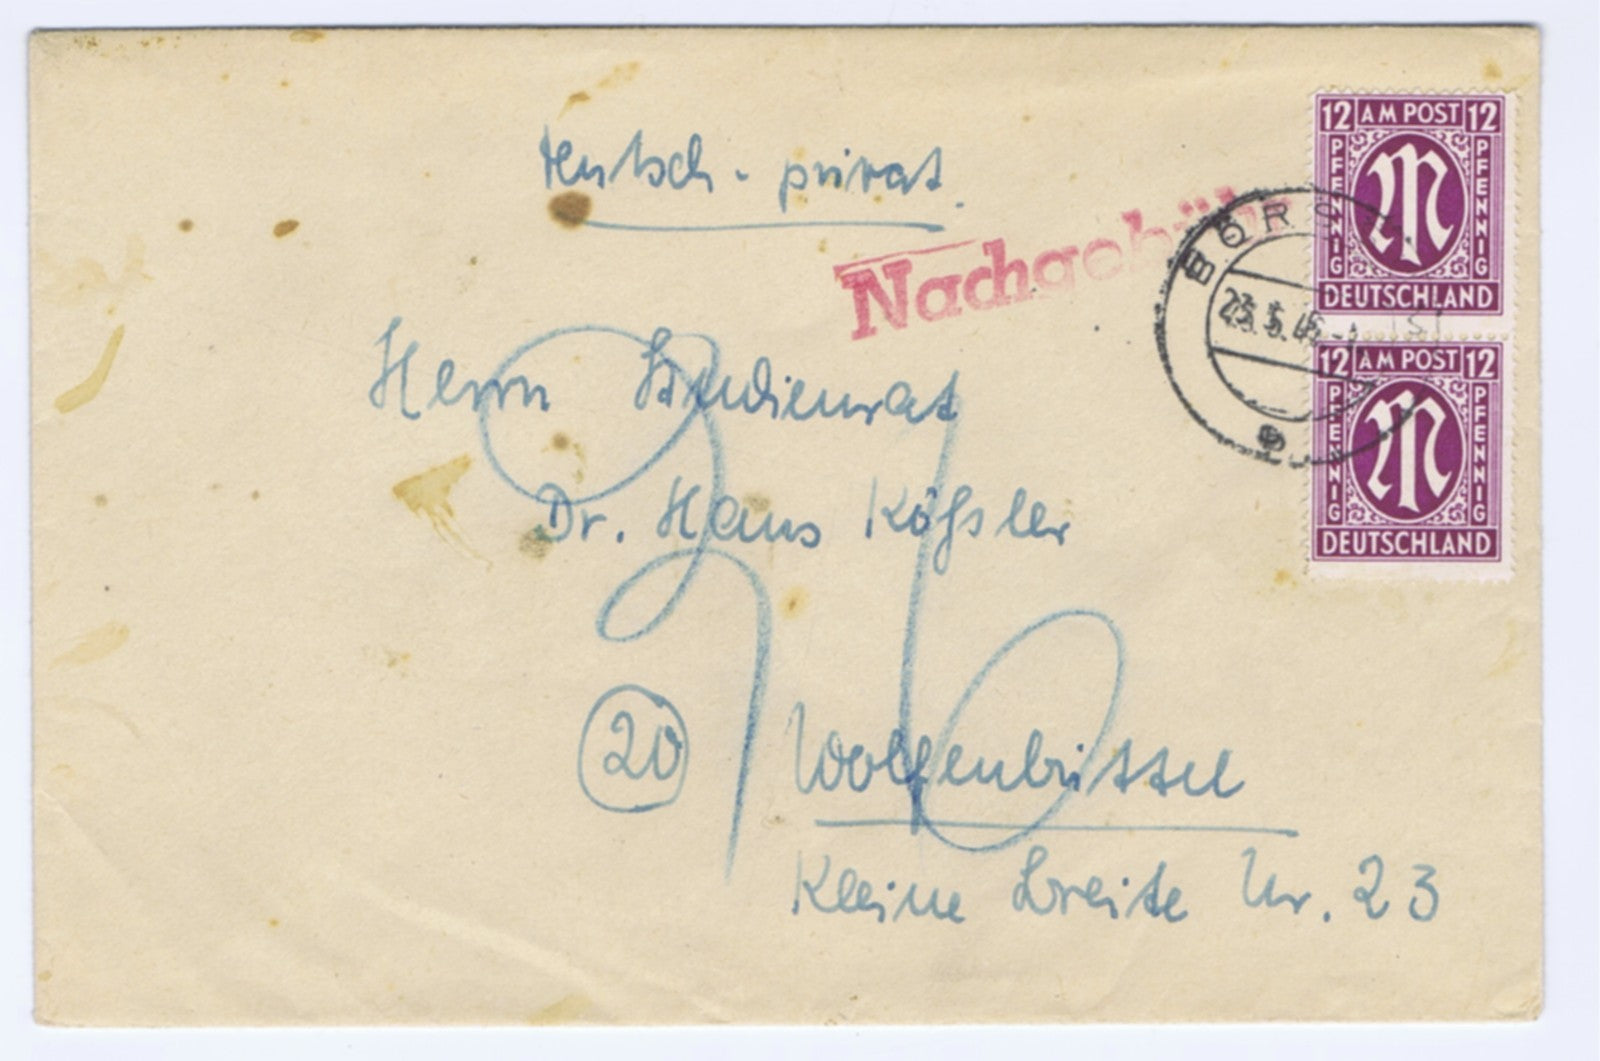 deutsch - privat.
Nachgebühr
12 AM POST 12
PFENNIG PFENNIG
DEUTSCHLAND
12 AM POST 12
PFENNIG PFENNIG
DEUTSCHLAND
Herrn Studienrat
Dr. Hans Kößler
20 Wolfenbüttel
Kleine Breite Nr. 23